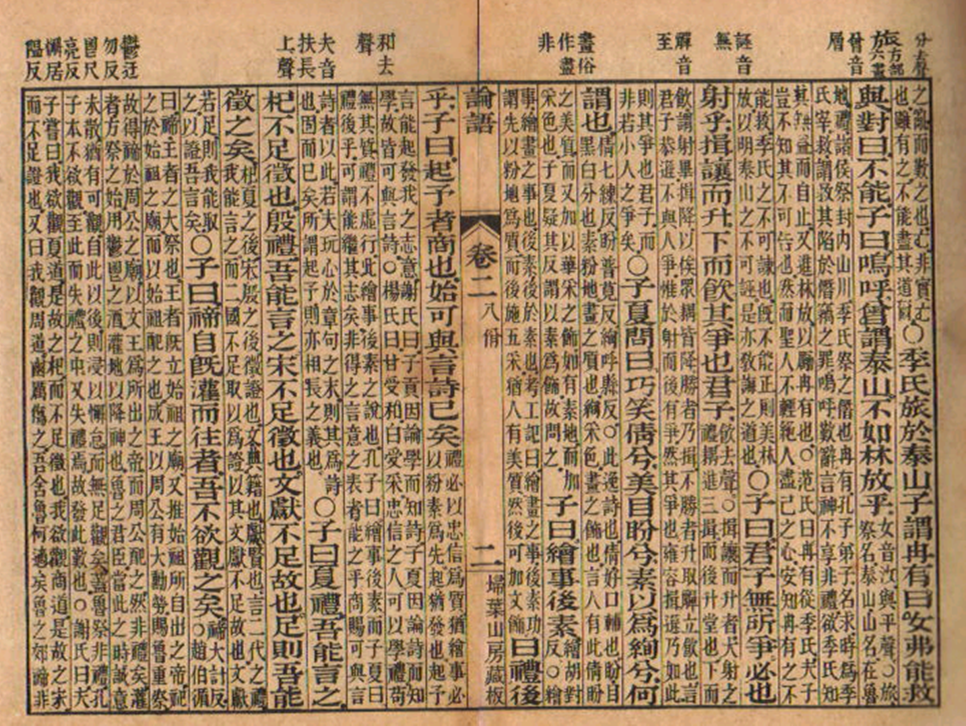 分去聲
旅方部六畫
曾音層
誣音無
觶音至
畫俗作畵非
和去聲
夫音扶長上聲
鬱迂勿反鬯尺亮反懈居隘反
之竊而數之也其非實亡
也雖有之不能盡其道爾
○季氏旅於泰山子謂冉有曰女弗能救
與對曰不能子曰嗚呼曾謂泰山不如林放乎
女音汝與平聲○旅
祭名泰山山名在魯
地禮諸侯祭封內山川季氏祭之僭也冉有孔子弟子名求時爲季
氏宰救謂救其陷於僭竊之罪嗚呼歎辭言神不享非禮欲季氏知
其無益而自止又進林放以厲冉有也○范氏曰冉有從季氏夫子
豈不知其不可告也然而聖人不輕絶人盡己之心安知冉有之不
能救季氏之不可諫也旣不能正則美林
放以明泰山之不可誣是亦敎誨之道也
○子曰君子無所爭必也
射乎揖讓而升下而飮其爭也君子
飮去聲○揖讓而升者大射之
禮耦進三揖而後升堂也下而
飮謂射畢揖降以俟眾耦皆降勝者乃揖不勝者升取觶立飮也言
君子恭遜不與人爭惟於射而後有爭然其爭也雍容揖遜乃如此
則其爭也君子而
非若小人之爭矣
○子夏問曰巧笑倩兮美目盼兮素以爲絢兮何
謂也
倩七練反盼普莧反絢呼縣反○此逸詩也倩好口輔也盼目
黑白分也素粉地畫之質也絢采色畫之飾也言人有此倩盼
之美質而又加以華采之飾如有素地而加
采色也子夏疑其反謂以素爲飾故問之
子曰繪事後素
繪胡對
反○繪
事繪畫之事也後素後於素也考工記曰繪畫之事後素功
謂先以粉地爲質而後施五采猶人有美質然後可加文飾
曰禮後
論語
卷二 八佾
二
掃葉山房藏板
乎子曰起予者商也始可與言詩已矣
禮必以忠信爲質猶繪事必
以粉素爲先起猶發也起予
言能起發我之志意謝氏曰子貢因論學而知詩子夏因論詩而知
學故皆可與言詩○楊氏曰甘受和白受采忠信之人可以學禮苟
無其質禮不虛行此繪事後素之說也孔子曰繪事後素而子夏曰
禮後乎可謂能繼其志矣非得之言意之表者能之乎商賜可與言
詩者以此若夫玩心於章句之末則其爲詩
也固而已矣所謂起予則亦相長之義也
○子曰夏禮吾能言之
杞不足徵也殷禮吾能言之宋不足徵也文獻不足故也足則吾能
徵之矣
杞夏之後宋殷之後徵證也文典籍也獻賢也言二代之禮
我能言之而二國不足取以爲證以其文獻不足故也文獻
若足則我能取
之以證吾言矣
○子曰禘自旣灌而往者吾不欲觀之矣
禘大計反
○趙伯循
曰禘王者之大祭也王者旣立始祖之廟又推始祖所自出之帝祀
之於始祖之廟而以始祖配之也成王以周公有大勳勞賜魯重祭
故得禘於周公之廟以文王爲所出之帝而周公配之然非禮矣灌
者方祭之始用鬱鬯之酒灌地以降神也魯之君臣當此之時誠意
未散猶有可觀自此以後則浸以懈怠而無足觀矣蓋魯祭非禮孔
子本不欲觀至此而失禮之中又失禮焉故發此歎也○謝氏曰夫
子嘗曰我欲觀夏道是故之杞而不足徵也我欲觀商道是故之宋
而不足證也又曰我觀周道幽厲傷之吾舍魯何適矣魯之郊禘非